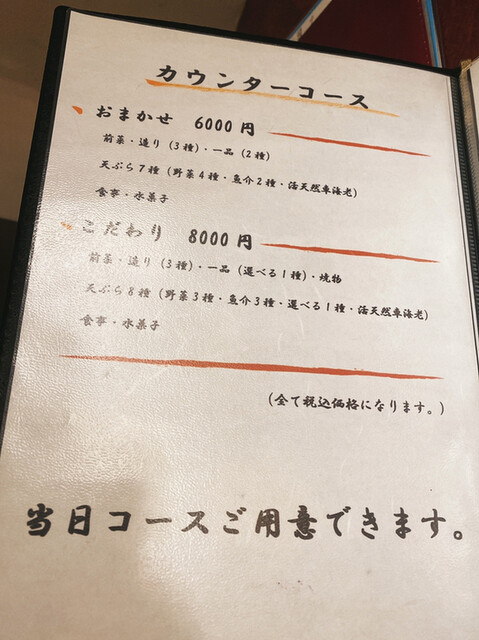 カウンターコース
おまかせ 6000円
前菜・造り(3種)・一品(2種)
天ぷら7種(野菜4種・魚介2種・活天然車海老)
食事・水菓子
こだわり 8000円
前菜・造り(3種)・一品(選べる1種)・焼物
天ぷら8種(野菜3種・魚介3種・選べる1種・活天然車海老)
食事・水菓子
(全て税込価格になります。)
当日コースご用意できます。